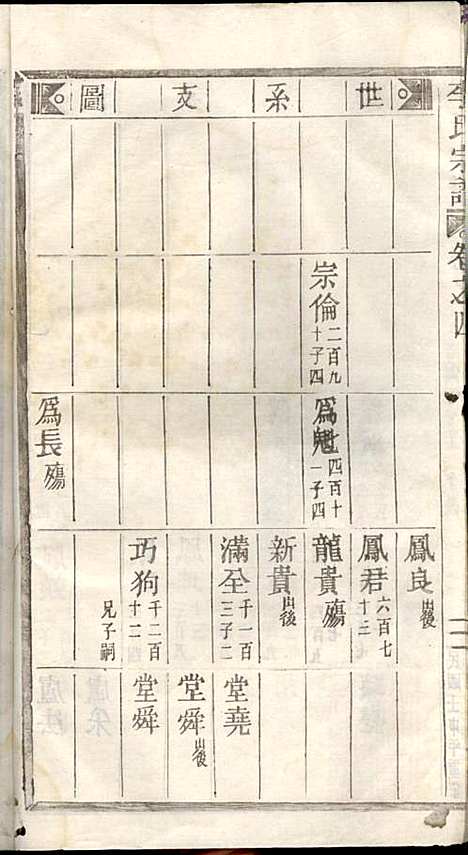 世系支圖
李氏宗譜
卷之四
宗倫 二百九十 子四
爲魁 七百四十 一子四
爲長 殤
鳳良 出後
鳳君 六百七十三
龍貴 殤
新貴 出後
滿全 千一百三 子二
巧狗 千二百十二
兄子嗣
堂堯
堂舜 出後
堂舜